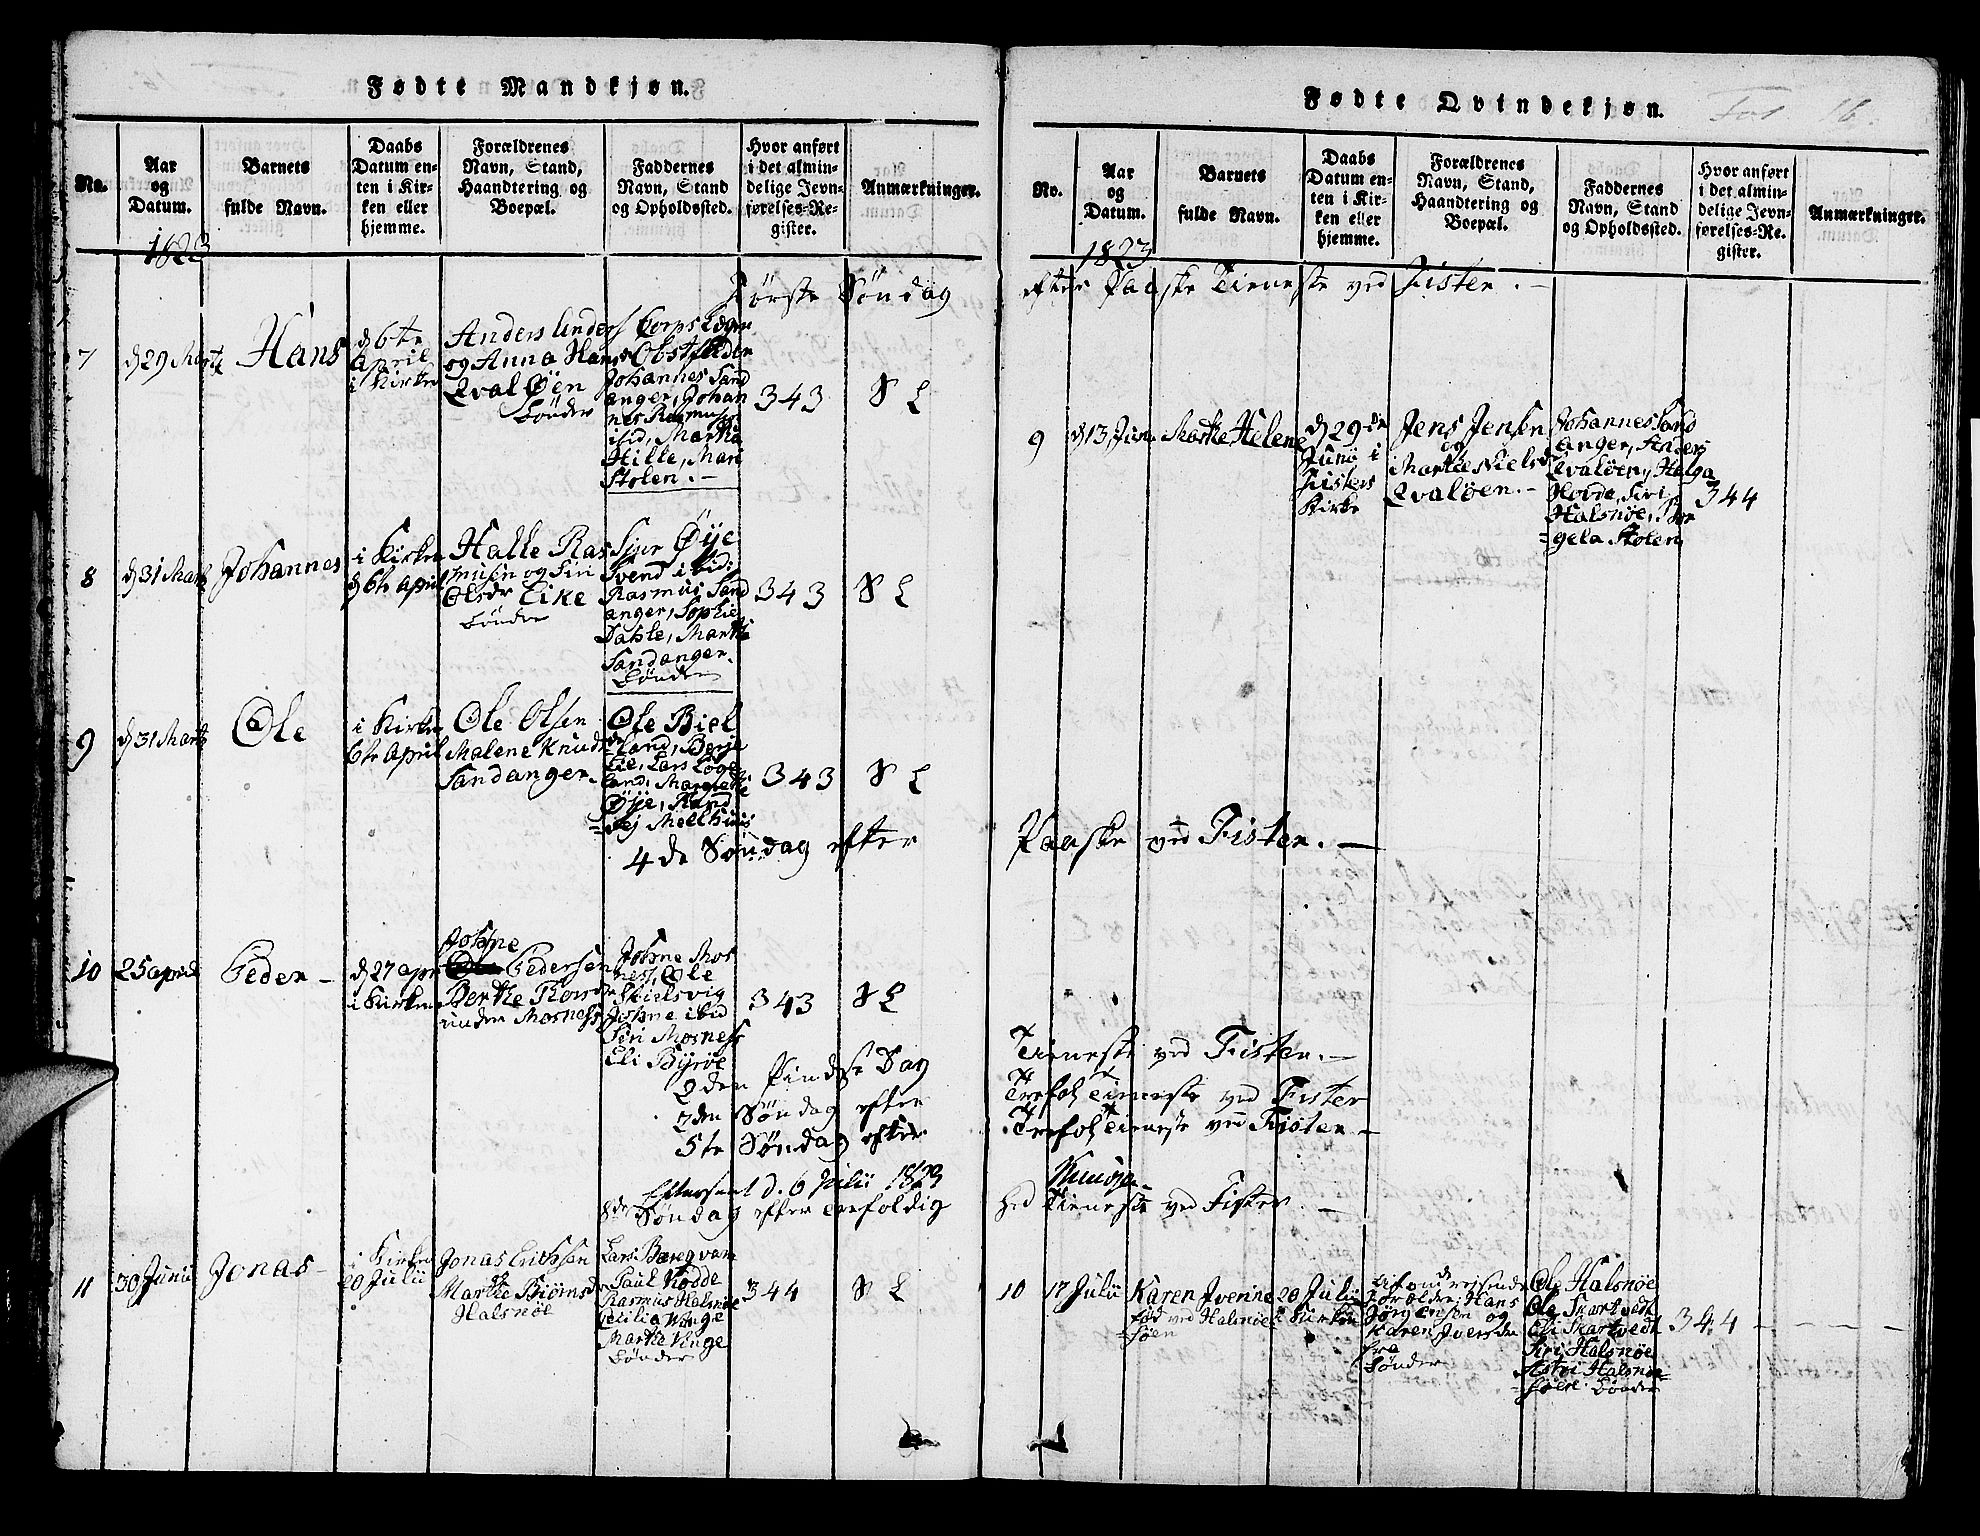 Fødte Mandkjøn.
No.
Aar
og
Datum.
Barnets
fulde Navn.
Daabs
Datum en-
ten i Kir-
ken eller
hjemme.
Forældrenes
Navn, Stand,
Haandtering og
Boepæl.
Faddernes
Navn, Stand
og Opholdssted.
Hvor anført
i det almin-
delige Jevn-
førelses-Re-
gister.
Anmærkninger.
1823
Første Søndag
7
d 29 Martz
Hans
d 6te
April
i Kirken
Anders Anders
og Anna Hans
Qvaløen
bønder
Corps Eger
Obstfelder
Johannes Sand
anger, Johan
nes Rasmusen
ibid, Martha
Hille, Mari
Stolen.
343
S L
8
d 31 Martz
Johannes
i Kirken
d 6te April
Halle Ras
musen og Siri
Olsdr Eike
bønder
Siur Øye
Svend ibid:
Rasmus Sand
anger, Sophie
Dahle, Marthe
Sandanger.
bønder
343
S L
9
d 31 Martz
Ole
i Kirken
6te April
Ole Olsen
Malene Knudsdr
Sandanger.
Ole Biel
land, Berje
Lie, Lars Løge
land, Margrethe
Øye, Rand
vej Mællhuus
343
S L
4de Søndag efter
10
25 april
Peder
d 27 apr
i Kirken
Johne
Pedersen
Berthe Thorsdr
under Mosness
Johne Mos
ness, Ole
Skielsvig
Johne ibid
Siri Mosness
Eli Byrøe
343
S L
2den Pindse Dag
2den Søndag efter
5te Søndag efter
Eftersent d. 6 Julii 1823
8de Søndag efter Trefoldig
11
30 Junii
Jonas
i Kirken
20 Julii
Jonas Erichsen
og
Marthe Biørnsdr
Halsnøe
Lars Bergvam
Paul Kodde
Rasmus Halsnøe
Cecilia Vinge
Marthe Vinge
bønder
344
S L
Fødte Qvindekjøn.
Fol 16.
No.
Aar
og
Datum.
Barnets
fulde Navn.
Daabs
Datum en-
ten i Kir-
ken eller
hjemme.
Forældrenes
Navn, Stand,
Haandtering og
Boepæl.
Faddernes
Navn, Stand
og Opholdssted.
Hvor anført
i det almin-
delige Jevn-
førelses-Re-
gister.
Anmærkninger.
1823
efter Paaske Tieneste ved Fister.
9
d 13 Juni
Marthe Helene
d 29de
Junii i
Fisters
Kirke
Jens Jensen
og
Marthe Nielsdr
Qvaløen.
Johannes Sand
anger, Anders
Qvaløen, Helga
Hovda, Siri
Halsnøe, Bor
gela Stolen
344
Paaske ved Fister.
Tieneste ved Fister.
Trefol Tieneste ved Fister
Trefol Tieneste ved Fister
hed Tieneste ved Fister.
10
17 Julii
Karen Jverine
fød ved Halsnøe
Søen
20 Julii
i Kirken
Forældre: Hans
Jørgensen og
Karen Jversdr
fra
bønder
Ole Halsnøe
Ole Skartvedt
Eli Skartvedt
Siri Halsnøe
Astri Halsnøe
bønder
344